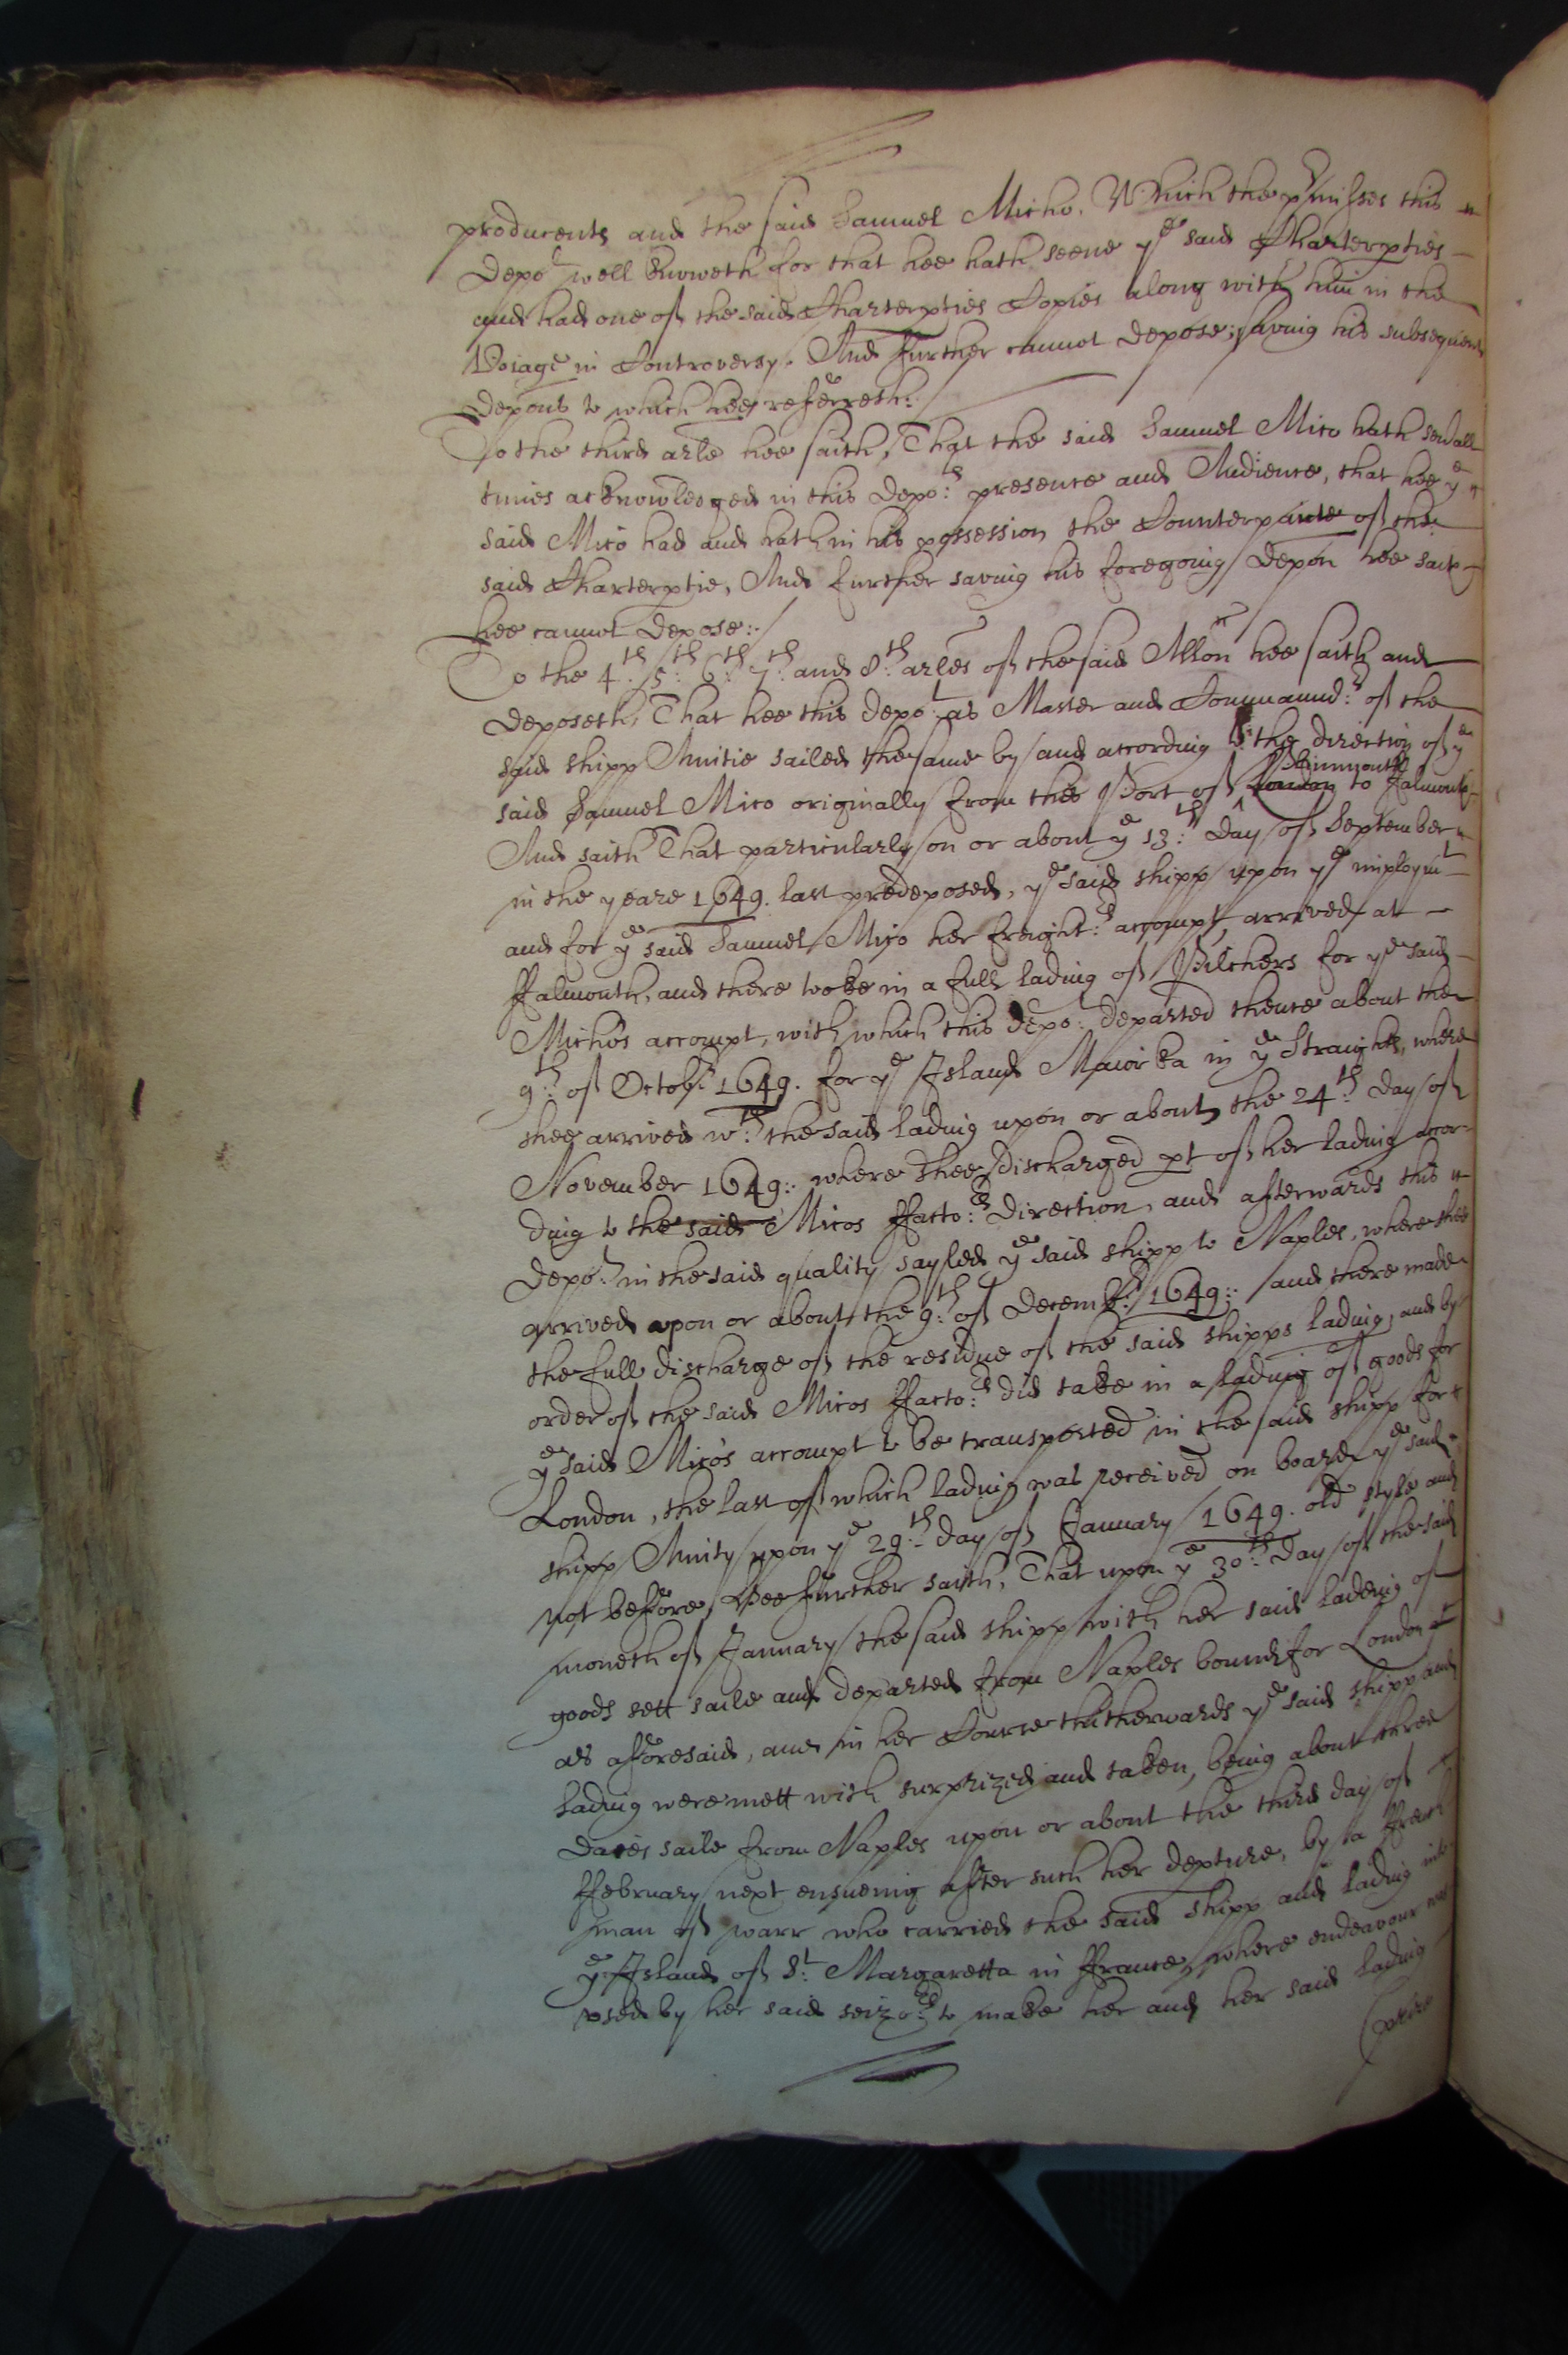 producents and the said Samuel Micho. Which the p'misses this
Depo:t well knoweth for that hee hath seene ye said Charterpties
and had one of the said Charterpties Copies along with him in the
Voiage in Controversy. And further cannot depose, saving his subsequent
depons to which hee referreth:
To the third arle hee saith, That the said Samuel Mico hath sevall
times acknowledged in this depo:ts presence and Audience, that hee ye
said Mico had and hath in his possession the Counterparte of the
said Charterptie, And further saving his foregoing depon hee saith
hee cannot depose:
To the 4th: 5th: 6th: 7th: and 8th: arles of the said Allon hee saith and
deposeth, That hee this depo:t as Master and Commaund:r of the
said shipp Amitie sailed the same by and according to the direction of ye
said Samuel Mico originally from the Port of London Plimmouth to Falmouth
And saith That particularly on or about ye 13:th day of September
in the yeare 1649. last predeposed, ye said shipp upon ye imploym:t
and for ye said Samuel Mico her freight:rs accompt, arrived at
ffalmouth, and there tooke in a full lading of Pilchers for ye said
Micho's accompt, with which this depo:t departed thence about the
9:th of Octob:r 1649. for ye Island Maiorka in ye Straights, where
shee arrived w:th the said lading upon or about the 24:th day of
November 1649:. where shee discharged pt of her lading accor-
ding to the said Micos ffacto:rs direction, and afterwards this
depo:t in the said quality sayled ye said shipp to Naples, where shee
arrived upon or about the 9:th of Decemb:r 1649:. and there made
the full discharge of the residue of the said shipps lading, and by
order of the said Micos ffacto:rs did take in a lading of goods for
ye said Mico's accompt to be transported in the said shipp for
London, the last of which lading was received on board ye said
shipp Amity upon ye 29:th day of January 1649. old style and
not before, Hee further saith, That upon ye 30:th day of the said
moneth of January the said shipp with her said ladeing of
goods sett saile and departed from Naples bound for London
as aforesaid, and in her Course thitherwards ye said shipp and
lading were mett with surprized and taken, being about three
daies saile from Naples upon or about the third day of
ffebruary next ensueing after such her depture, by a ffrench
man of warr who carried the said shipp and lading into
ye Island of St: Margaretta in ffrance, where endeavour was
used by her said seizo:rs to make her and her said lading
prize